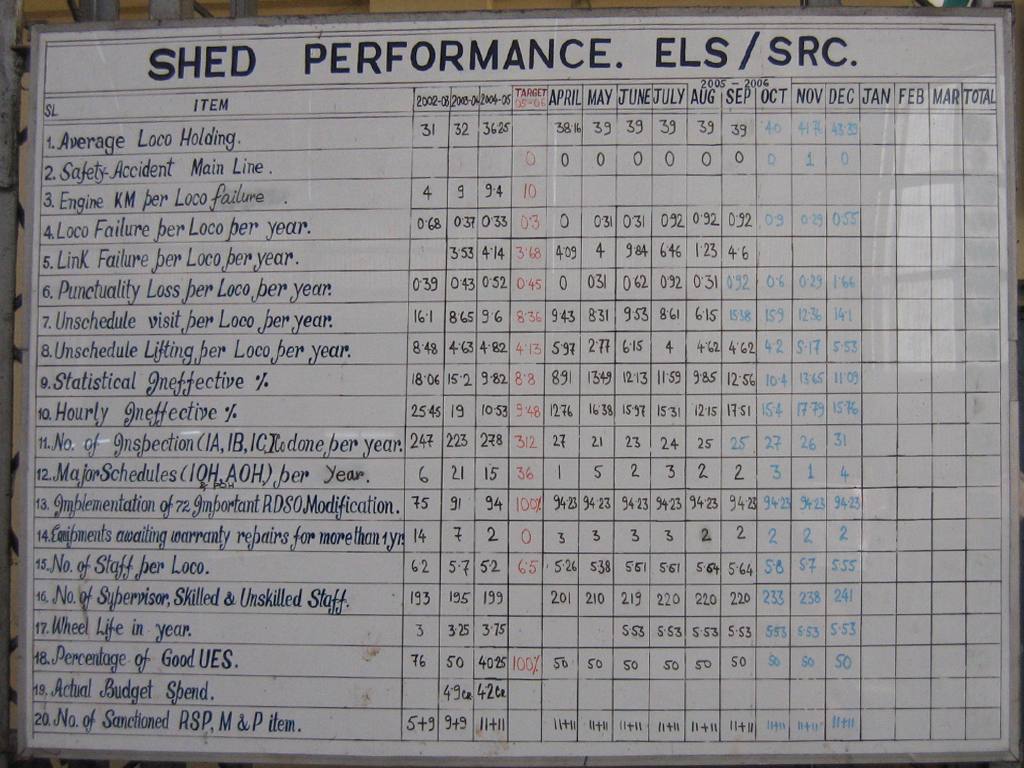 SHED PERFORMANCE. ELS/SRC.
2005 - 2006
SL ITEM 2002-03 2003-04 2004-05 TARGET 05-06 APRIL MAY JUNE JULY AUG SEP OCT NOV DEC JAN FEB MAR TOTAL
1. Average Loco Holding. 31 32 36·25 38·16 39 39 39 39 39 40 41·76 43·39
2. Safety-Accident Main Line. 0 0 0 0 0 0 0 0 1 0
3. Engine KM per Loco failure. 4 9 9·4 10
4. Loco Failure per Loco per year. 0·68 0·37 0·33 0·3 0 0·31 0·31 0·92 0·92 0·92 0·9 0·29 0·55
5. Link Failure per Loco per year. 3·53 4·14 3·68 4·09 4 9·84 6·46 1·23 4·6
6. Punctuality Loss per Loco per year. 0·39 0·43 0·52 0·45 0 031 0·62 0·92 0·31 0·92 0·6 0·29 1·66
7. Unschedule visit per Loco per year. 16·1 8·65 9·6 8·36 9·43 8·31 9·53 8·61 6·15 15·38 15·9 12·36 14·1
8. Unschedule Lifting per Loco per year. 8·48 4·63 4·82 4·13 5·97 2·77 6·15 4 4·62 4·62 4·2 5·17 5·53
9. Statistical Ineffective % 18·06 15·2 9·82 8·8 8·91 13·49 12·13 11·59 9·85 12·56 10·4 13·65 11·09
10. Hourly Ineffective % 25·45 19 10·53 9·48 12·76 16·38 15·97 15·31 12·15 17·51 15·4 17·79 15·76
11. No. of Inspection (IA, IB, IC, done per year. 247 223 278 312 27 21 23 24 25 25 27 26 31
12. Major Schedules (IOH, AOH) per Year. 6 21 15 36 1 5 2 3 2 2 3 1 4
& POH
13. Implementation of 72 Important RDSO Modification. 75 91 94 100% 94·23 94·23 94·23 94·23 94·23 94·23 94·23 94·23 94·23
14. Equipments awaiting warranty repairs for more than 1 yr 14 7 2 0 3 3 3 3 2 2 2 2 2
15. No. of Staff per Loco. 6·2 5·7 5·2 6·5 5·26 5·38 5·61 5·61 5·64 5·64 5·8 5·7 5·55
16. No. of Supervisor, Skilled & Unskilled Staff. 193 195 199 201 210 219 220 220 220 233 238 241
17. Wheel Life in year. 3 3·25 3·75 5·53 5·53 5·53 5·53 5·53 5·53 5·53
18. Percentage of Good UES. 76 50 40·25 100% 50 50 50 50 50 50 50 50 50
19. Actual Budget Spend. 4·9 4·2
20. No. of Sanctioned RSP, M & P item. 5+9 9+9 11+11 11+11 11+11 11+11 11+11 11+11 11+11 11+11 11+11 11+11